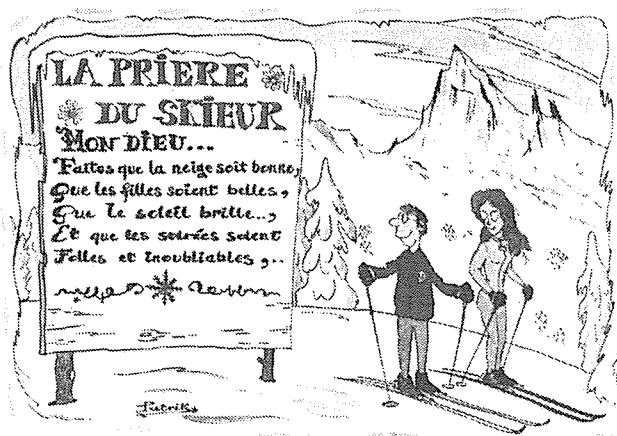 LA PRIERE
DU SKIEUR
MON DIEU...
Faites que la neige soit bonne,
Que les filles soient belles,
Que le soleil brille..,
Et que les soirées soient
Folles et inoubliables,..
Patrik